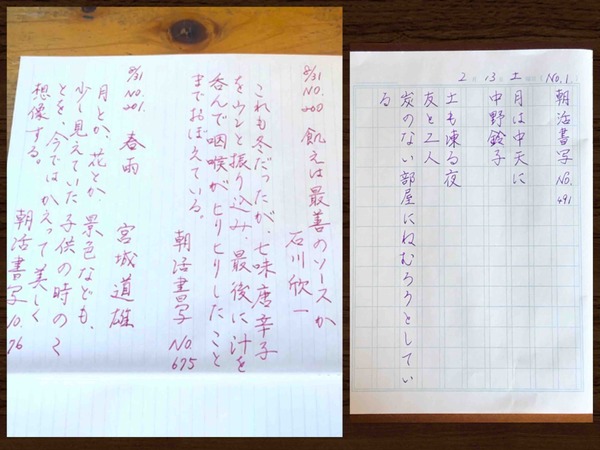 8/31 NO.200 飢えは最善のソースか
石川欣一
これも冬だったが、七味唐辛子
をウンと振り込み、最後に汁を
呑んで咽喉がヒリヒリしたこと
までおぼえている。
朝活書写 No.675
8/31 NO.201. 春雨 宮城道雄
月とか、花とか、景色なども、
少し見えていた子供の時のこ
とを、今ではかえって美しく
想像する。
朝活書写
2 13 土 No.1.
朝活書写 No.491
月は中天に
中野鈴子
土も凍る夜
友と二人
炭のない部屋にねむろうとしてい
る